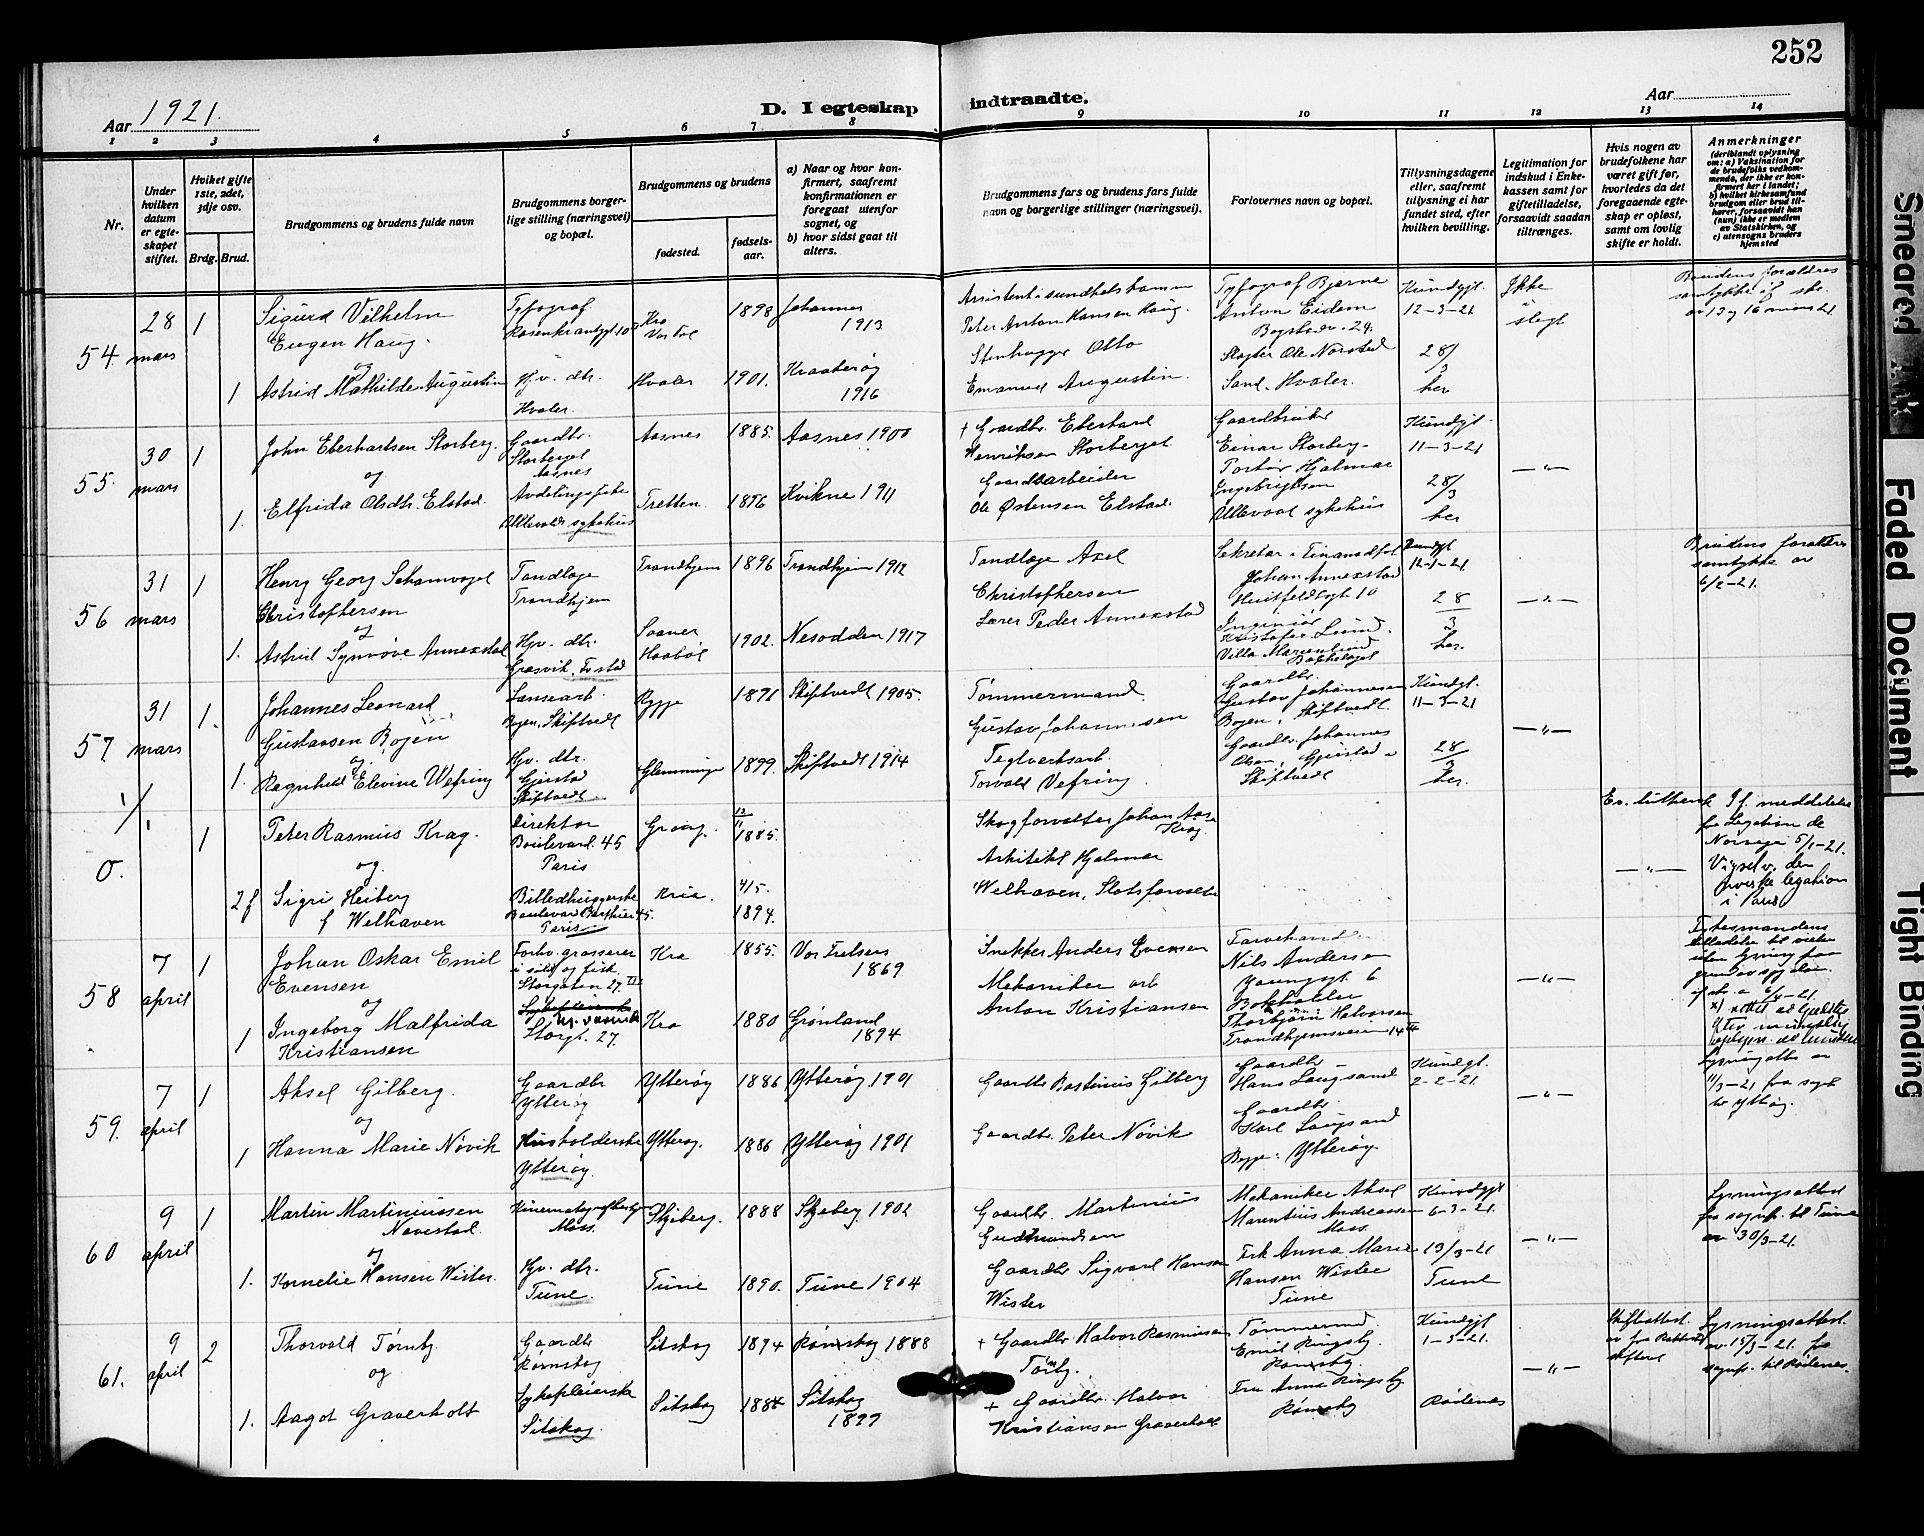 252
Aar 1921.
D. I egteskap indtraadte.
Aar
1 2 3 4 5 6 7 8 9 10 11 12 13 14
Nr.
Under hvilken datum er egteskapet stiftet.
Hviket gifte 1ste, 2det, 3dje osv.
Brdg. Brud.
Brudgommens og brudens fulde navn
Brudgommens borgerlige stilling (næringsvei) og bopæl.
Brudgommens og brudens
fødested.
fødselsaar.
a) Naar og hvor konfirmert, saafremt konfirmationen er foregaat utenfor sognet, og
b) hvor sidst gaat til alters.
Brudgommens fars og brudens fars fulde navn og borgerlige stillinger (næringsvei).
Forlovernes navn og bopæl.
Tillysningsdagene eller, saafremt tillysning ei har fundet sted, efter hvilken bevilling.
Legitimation for indskud i Enkekassen samt for giftetilladelse, forsaavidt saadan tiltrænges.
Hvis nogen av brudefolkene har været gift før, hvorledes da det foregaaende egteskap er opløst, samt om lovlig skifte er holdt.
Anmerkninger
(deriblandt oplysning om: a) Vaksination for de brudefolks vedkommende, der ikke er konfirmert her i landet; b) hvilket kirkesamfund brudgom eller brud tilhører, forsaavidt han (hun) ikke er medlem av Statskirken, og c) utensogns bruders hjemsted
54. 28 mars 1
Sigurd Vilhelm
Eugen Haug.
og
1 Astrid Mathilde Augustin
Typograf
Rosenkrantzgt 10
Hjv. dtr.
Hvaler.
Kra
Hvaler
1898
1901.
Johannes
1913
Kraakerøy
1916
Assistent i sundhetskomm
Peter Anton Hansen Haug.
Stenhugger Otto
Emanuel Augustin.
Typograf Bjarne
Anton Eidem
Bogstadv. 29.
Slagter Ole Norstad
Sand. Hvaler.
Kundgjt.
12-3-21
28/3
her
Ikke
i
slegt
Brudens forældres
samtykke if skr.
av 13 og 16 mars 21
55. 30 mars 1
John Eberhartsen Storberg.
og
1. Elfrida Olsdtr. Elstad.
Gaardbr.
Storberget
Aasnes
Ullevold sykehus
Aasnes
Tretten.
1885.
1896
Aasnes 1900
Kvikne 1911
+ Gaardbr. Eberhard
Henriksen Storberget
Gaardsarbeider
Ole Østensen Elstad.
Gaardbruker
Einar Storberg-
Portør Hjalmar
Ingebrigtsen
Ullevaal sykehus
Kundgjt.
11-3-21
28/3
her
—"—
56 31 mars 1
Henry Georg Schamvogel
Christophersen
og
1. Astrid Synnøve Annexstad
Tandlæge
Trondhjem
Hjv. dtr.
Græsvik,
Trondhjem
Saaner
Haabøl
1896
1902.
Trondhjem 1912
Nesodden 1917
Tandlæge Axel
Christophersen
Lærer Peder Annexstad
Johan Annexstad
Huitfeldtsgt. 10
Ingeniør
Kristofer Lund.
Villa Marienlund
Bækkelaget
Kundgjt
12-1-21
28/3
her.
—"—
Brudens forældres
samtykke av
6/2-21.
57. 31 mars 1.
Johannes Leonard
Gustavsen Bøjen
og
1. Ragnhild Elevine Wefring
Bøjen, Skiptvedt
Hjv. dtr.
Gjerstad
Skiptvedt
Rygge
Glemminge
1891
1899.
Skiptvedt 1905.
Skiptvedt 1914
Tømmermand
Gustav Johannesen
Teglverksarb.
Torvald Vefring
Gaardbr.
Gustav Johannesen
Bøjen, Skiptvedt.
Gaardbr. Johannes
Olsen, Gjerstad
Skiptvedt
Kundgjt.
11-3-21
28/3
her.
—"—
0. 1
Peter Rasmus Krag.
og
2 f Sigri Heiberg
f Welhaven
Direktør
Boulevard 45
Paris
Billedhuggerske
Boulevard Berthier 45.
Paris
Kria.
12/11 1885.
4/5. 1894.
Skogforvalter Johan Aars
Krag
Arkitekt Hjalmar
Welhaven, Slotsforvalter
Ev. luthersk
—"—
If. meddelelse
fra Legation de
Norvege 5/1-21.
Vigsel v. den
norske legation
i Paris
58 7 april 1
Johan Oskar Emil
Evensen
og
1 Ingeborg Malfrida
Kristiansen
Forhv. grosserer
i sild og fisk.
Storgaten 27 III
Storgt. 27.
Kra
Kra
1855.
1880
Vor Frelsers
1869
Grønland
1894
Snekker Anders Evensen
Mekaniker arb
Anton Kristiansen
Farvehandler
Nils Andersen
Youngsgt. 6.
Bokholder
Thorbjørn Halvorsen
Trondhjemsveien 14
—"—
59. 7 april 1
Aksel Gilberg.
og
1 Hanna Marie Nøvik
Gaardbr
Ytterøy
Husholderske
Ytterøy.
Ytterøy
Ytterøy.
1886
1886
Ytterøy 1901
Ytterøy 1901
Gaardbr Bastinius Gilberg
Gaardbr. Peter Nøvik
Gaardbr
Hans Laugsand
Gaardbr.
Karl Laugsand
Begge: Ytterøy
Kundgt.
2-2-21.
—"—
Lysningsatt av
11/3-21 fra sgpr
til Ytterøy.
60 9 april 1
Martin Martiniussen
Navestad.
og
1. Kornelie Hansen Wister.
Moss.
Hjv. dtr.
Tune.
Skjeberg.
Tune
1888
1890.
Skjeberg 1902
Tune 1904
Gaardbr. Martinius
Gudmundsen
Gaardbr Sigvart Hansen
Wister
Mekaniker Aksel
Marentius Andreassen
Moss.
Frk Anna Marie
Hansen Wister
Tune
Kundgjt
6-3-21.
13/3-21
Tune
—"—
Lysningsattest
fra sognpr. til Tune
av 30/3-21.
61. 9 april 2
Thorvald Tørnby.
og
1. Aagot Graverholt
Gaardbr
Rømskog
Sykepleierske
Sitskog.
Sitskog
Sitskog
1874
1884
Rømskog 1888
Sitskog
1899
+ Gaardbr Halvor Rasmussen
Tørnby.
+ Gaardbr. Halvor
Kristiansen Graverholt
Tømmermd.
Emil Ringsby
Rømskog.
Fru Anna Ringsby.
Rømskog
Kundgjt
1-3-21.
Rødenes
—"—
Skifteattest.
av fra Rakkestad
skifteret
Lysningsattest
av 15/3-21. fra
sognpr. til Rødenes.
Smeared Ink
Faded Document
Tight Binding